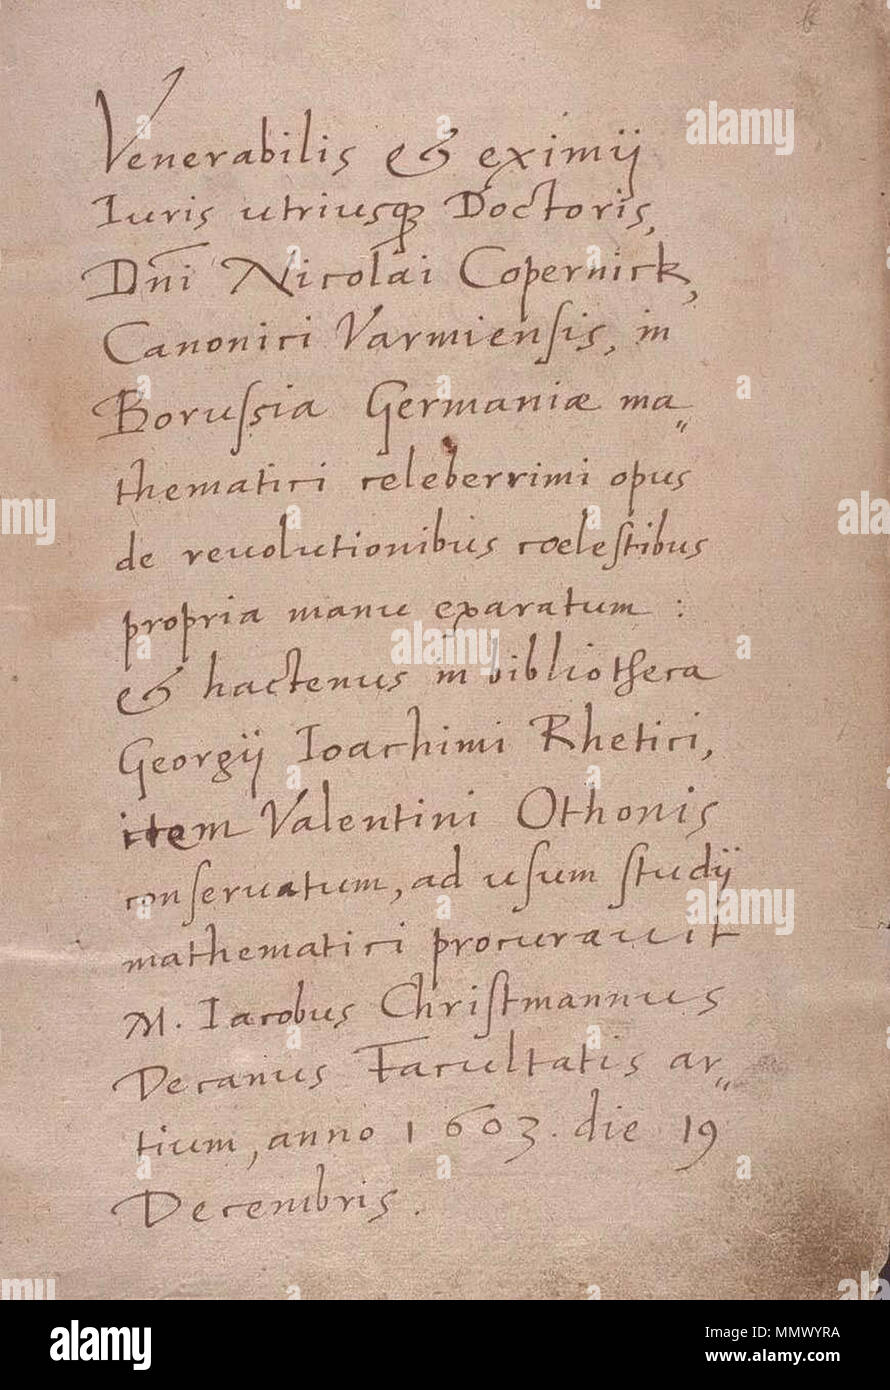 Venerabilis & eximij
Iuris utriusq Doctoris,
Dñi Nicolai Copernick,
Canonici Varmienſis, in
Boruſsia Germaniæ ma„
thematici celeberrimi opus
de reuolutionibus cœleſtibus
propria manu exaratum :
& hactenus in bibliotheca
Georgij Ioachimi Rhetici,
item Valentini Othonis
conſeruatum, ad uſum ſtudij
mathematici procurauit
M. Iacobus Chriſtmannus
Decanus Facultatis ar„
tium, anno 1603. die 19
Decembris.
alamy
Image ID: MMWYRA
www.alamy.com